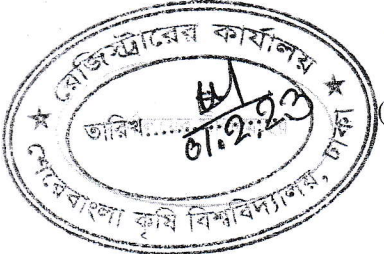 রেজিস্ট্রারের কার্যালয়
তারিখ.....
৩১.২.23
শেরেবাংলা কৃষি বিশ্ববিদ্যালয়, ঢাকা